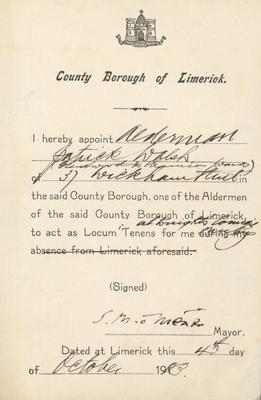 County Borough of Limerick.
I hereby appoint Alderman
Patrick Walsh
of 37 Wickham Street in
the said County Borough, one of the Aldermen
of the said County Borough of Limerick,
to act as Locum Tenens for me during my
absence from Limerick aforesaid.
(Signed)
S. M. O'Mara
Mayor.
Dated at Limerick this 4th day
of October 19